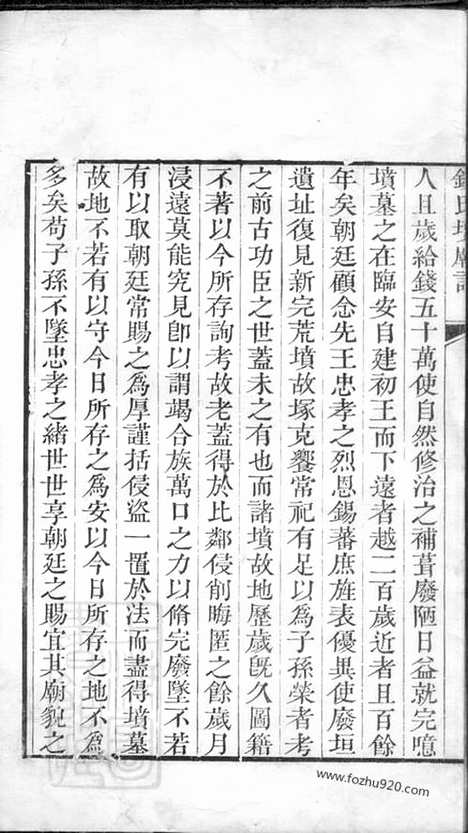 錢氏墳廟記
人且歲給錢五十萬使自然修治之補葺廢陋日益就完噫
墳墓之在臨安自建初王而下遠者越二百歲近者且百餘
年矣朝廷顧念先王忠孝之烈恩錫蕃庶旌表優異使廢垣
遺址復見新完荒墳故塚克饗常祀有足以為子孫榮者考
之前古功臣之世蓋未之有也而諸墳故地歷歲旣久圖籍
不著以今所存詢考故老蓋得於比鄰侵削晦匿之餘歲月
浸遠莫能究見卽以謂竭合族萬口之力以脩完廢墜不若
有以取朝廷常賜之為厚謹括侵盜一置於法而盡得墳墓
故地不若有以守今日所存之為安以今日所存之地不為
多矣苟子孫不墜忠孝之緒世世享朝廷之賜宜其廟貌之
www.fozhu920.com